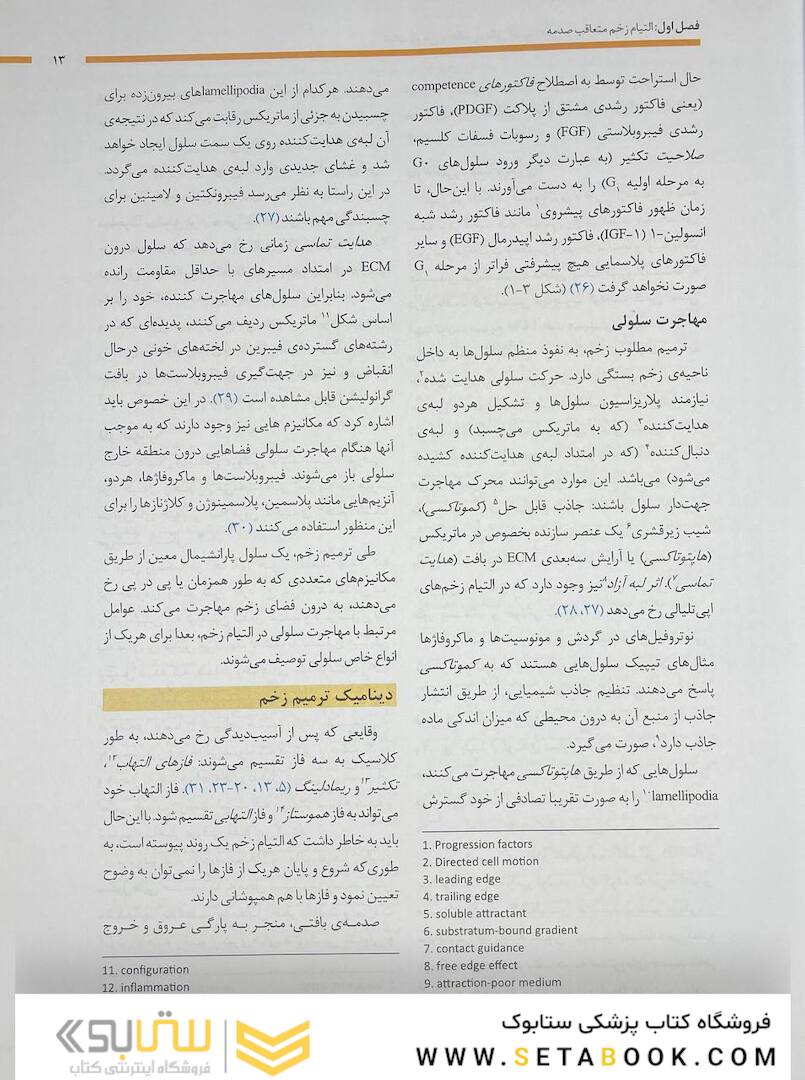 فصل اول: التیام زخم متعاقب صدمه
۱۳
حال استراحت توسط به اصطلاح فاکتورهای competence
(یعنی فاکتور رشدی مشتق از پلاکت (PDGF)، فاکتور
رشدی فیبروبلاستی (FGF) و رسوبات فسفات کلسیم،
صلاحیت تکثیر (به عبارت دیگر ورود سلول‌های G۰
به مرحله اولیه G۱) را به دست می‌آورند. با این‌حال، تا
زمان ظهور فاکتورهای پیشروی۱ مانند فاکتور رشد شبه
انسولین-۱ (IGF-۱)، فاکتور رشد اپیدرمال (EGF) و سایر
فاکتورهای پلاسمایی هیچ پیشرفتی فراتر از مرحله G۱
صورت نخواهد گرفت (۲۶) (شکل ۳-۱).
مهاجرت سلولی
ترمیم مطلوب زخم، به نفوذ منظم سلول‌ها به داخل
ناحیه‌ی زخم بستگی دارد. حرکت سلولی هدایت شده۲،
نیازمند پلاریزاسیون سلول‌ها و تشکیل هردو لبه‌ی
هدایت‌کننده۳ (که به ماتریکس می‌چسبد) و لبه‌ی
دنبال‌کننده۴ (که در امتداد لبه‌ی هدایت‌کننده کشیده
می‌شود) می‌باشد. این موارد می‌توانند محرک مهاجرت
جهت‌دار سلول باشند: جاذب قابل حل۵ (کموتاکسی)،
شیب زیرقشری۶ یک عنصر سازنده بخصوص در ماتریکس
(هاپتوتاکسی) یا آرایش سه‌بعدی ECM در بافت (هدایت
تماسی۷). اثر لبه آزاد۸ نیز وجود دارد که در التیام زخم‌های
اپی‌تلیالی رخ می‌دهد (۲۷، ۲۸).
نوتروفیل‌های در گردش و مونوسیت‌ها و ماکروفاژها
مثال‌های تیپیک سلول‌هایی هستند که به کموتاکسی
پاسخ می‌دهند. تنظیم جاذب شیمیایی، از طریق انتشار
جاذب از منبع آن به درون محیطی که میزان اندکی ماده
جاذب دارد۹، صورت می‌گیرد.
سلول‌هایی که از طریق هاپتوتاکسی مهاجرت می‌کنند،
lamellipodia۱۰ را به صورت تقریبا تصادفی از خود گسترش
1. Progression factors
2. Directed cell motion
3. leading edge
4. trailing edge
5. soluble attractant
6. substratum-bound gradient
7. contact guidance
8. free edge effect
9. attraction-poor medium
می‌دهند. هرکدام از این lamellipodiaهای بیرون‌زده برای
چسبیدن به جزئی از ماتریکس رقابت می‌کند که در نتیجه‌ی
آن لبه‌ی هدایت‌کننده روی یک سمت سلول ایجاد خواهد
شد و غشای جدیدی وارد لبه‌ی هدایت‌کننده می‌گردد.
در این راستا به نظر می‌رسد فیبرونکتین و لامینین برای
چسبندگی مهم باشند (۲۷).
هدایت تماسی زمانی رخ می‌دهد که سلول درون
ECM در امتداد مسیرهای با حداقل مقاومت رانده
می‌شود. بنابراین سلول‌های مهاجرت کننده، خود را بر
اساس شکل۱۱ ماتریکس ردیف می‌کنند، پدیده‌ای که در
رشته‌های گسترده‌ی فیبرین در لخته‌های خونی درحال
انقباض و نیز در جهت‌گیری فیبروبلاست‌ها در بافت
گرانولیشن قابل مشاهده است (۲۹). در این خصوص باید
اشاره کرد که مکانیزم هایی نیز وجود دارند که به موجب
آنها هنگام مهاجرت سلولی فضاهایی درون منطقه خارج
سلولی باز می‌شوند. فیبروبلاست‌ها و ماکروفاژها، هردو،
آنزیم‌هایی مانند پلاسمین، پلاسمینوژن و کلاژنازها را برای
این منظور استفاده می‌کنند (۳۰).
طی ترمیم زخم، یک سلول پارانشیمال معین از طریق
مکانیزم‌های متعددی که به طور همزمان یا پی در پی رخ
می‌دهند، به درون فضای زخم مهاجرت می‌کند. عوامل
مرتبط با مهاجرت سلولی در التیام زخم، بعدا برای هریک از
انواع خاص سلولی توصیف می‌شوند.
دینامیک ترمیم زخم
وقایعی که پس از آسیب‌دیدگی رخ می‌دهند، به طور
کلاسیک به سه فاز تقسیم می‌شوند: فازهای التهاب۱۲،
تکثیر۱۳ و ریمادلینگ (۵، ۱۳، ۲۰-۲۳، ۳۱). فاز التهاب خود
می‌تواند به فاز هموستاز۱۴ و فاز التهابی تقسیم شود. با این‌حال
باید به خاطر داشت که التیام زخم یک روند پیوسته است، به
طوری‌که شروع و پایان هریک از فازها را نمی‌توان به وضوح
تعیین نمود و فازها با هم همپوشانی دارند.
صدمه‌ی بافتی، منجر به پارگی عروق و خروج
11. configuration
12. inflammation
فروشگاه کتاب پزشکی ستابوک
WWW.SETABOOK.COM
ستابوک
فروشگاه اینترنتی کتاب